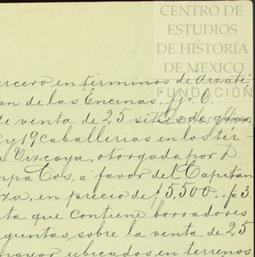 CENTRO DE
ESTUDIOS
DE HISTORIA
DE MÉXICO
FUNDACIÓN
ercero en términos de
an de las Encinas. fjs. 6.
de venta de 25 sitios de
y 19 Caballerias en los
a Vizcaya, otorgada por D.
mpa Cos, a favor del Capitán
za, en precio de $5,500 fs 3
ta que contiene borradores
eguntas, sobre la venta de 25
mayor ubicados en terrenos